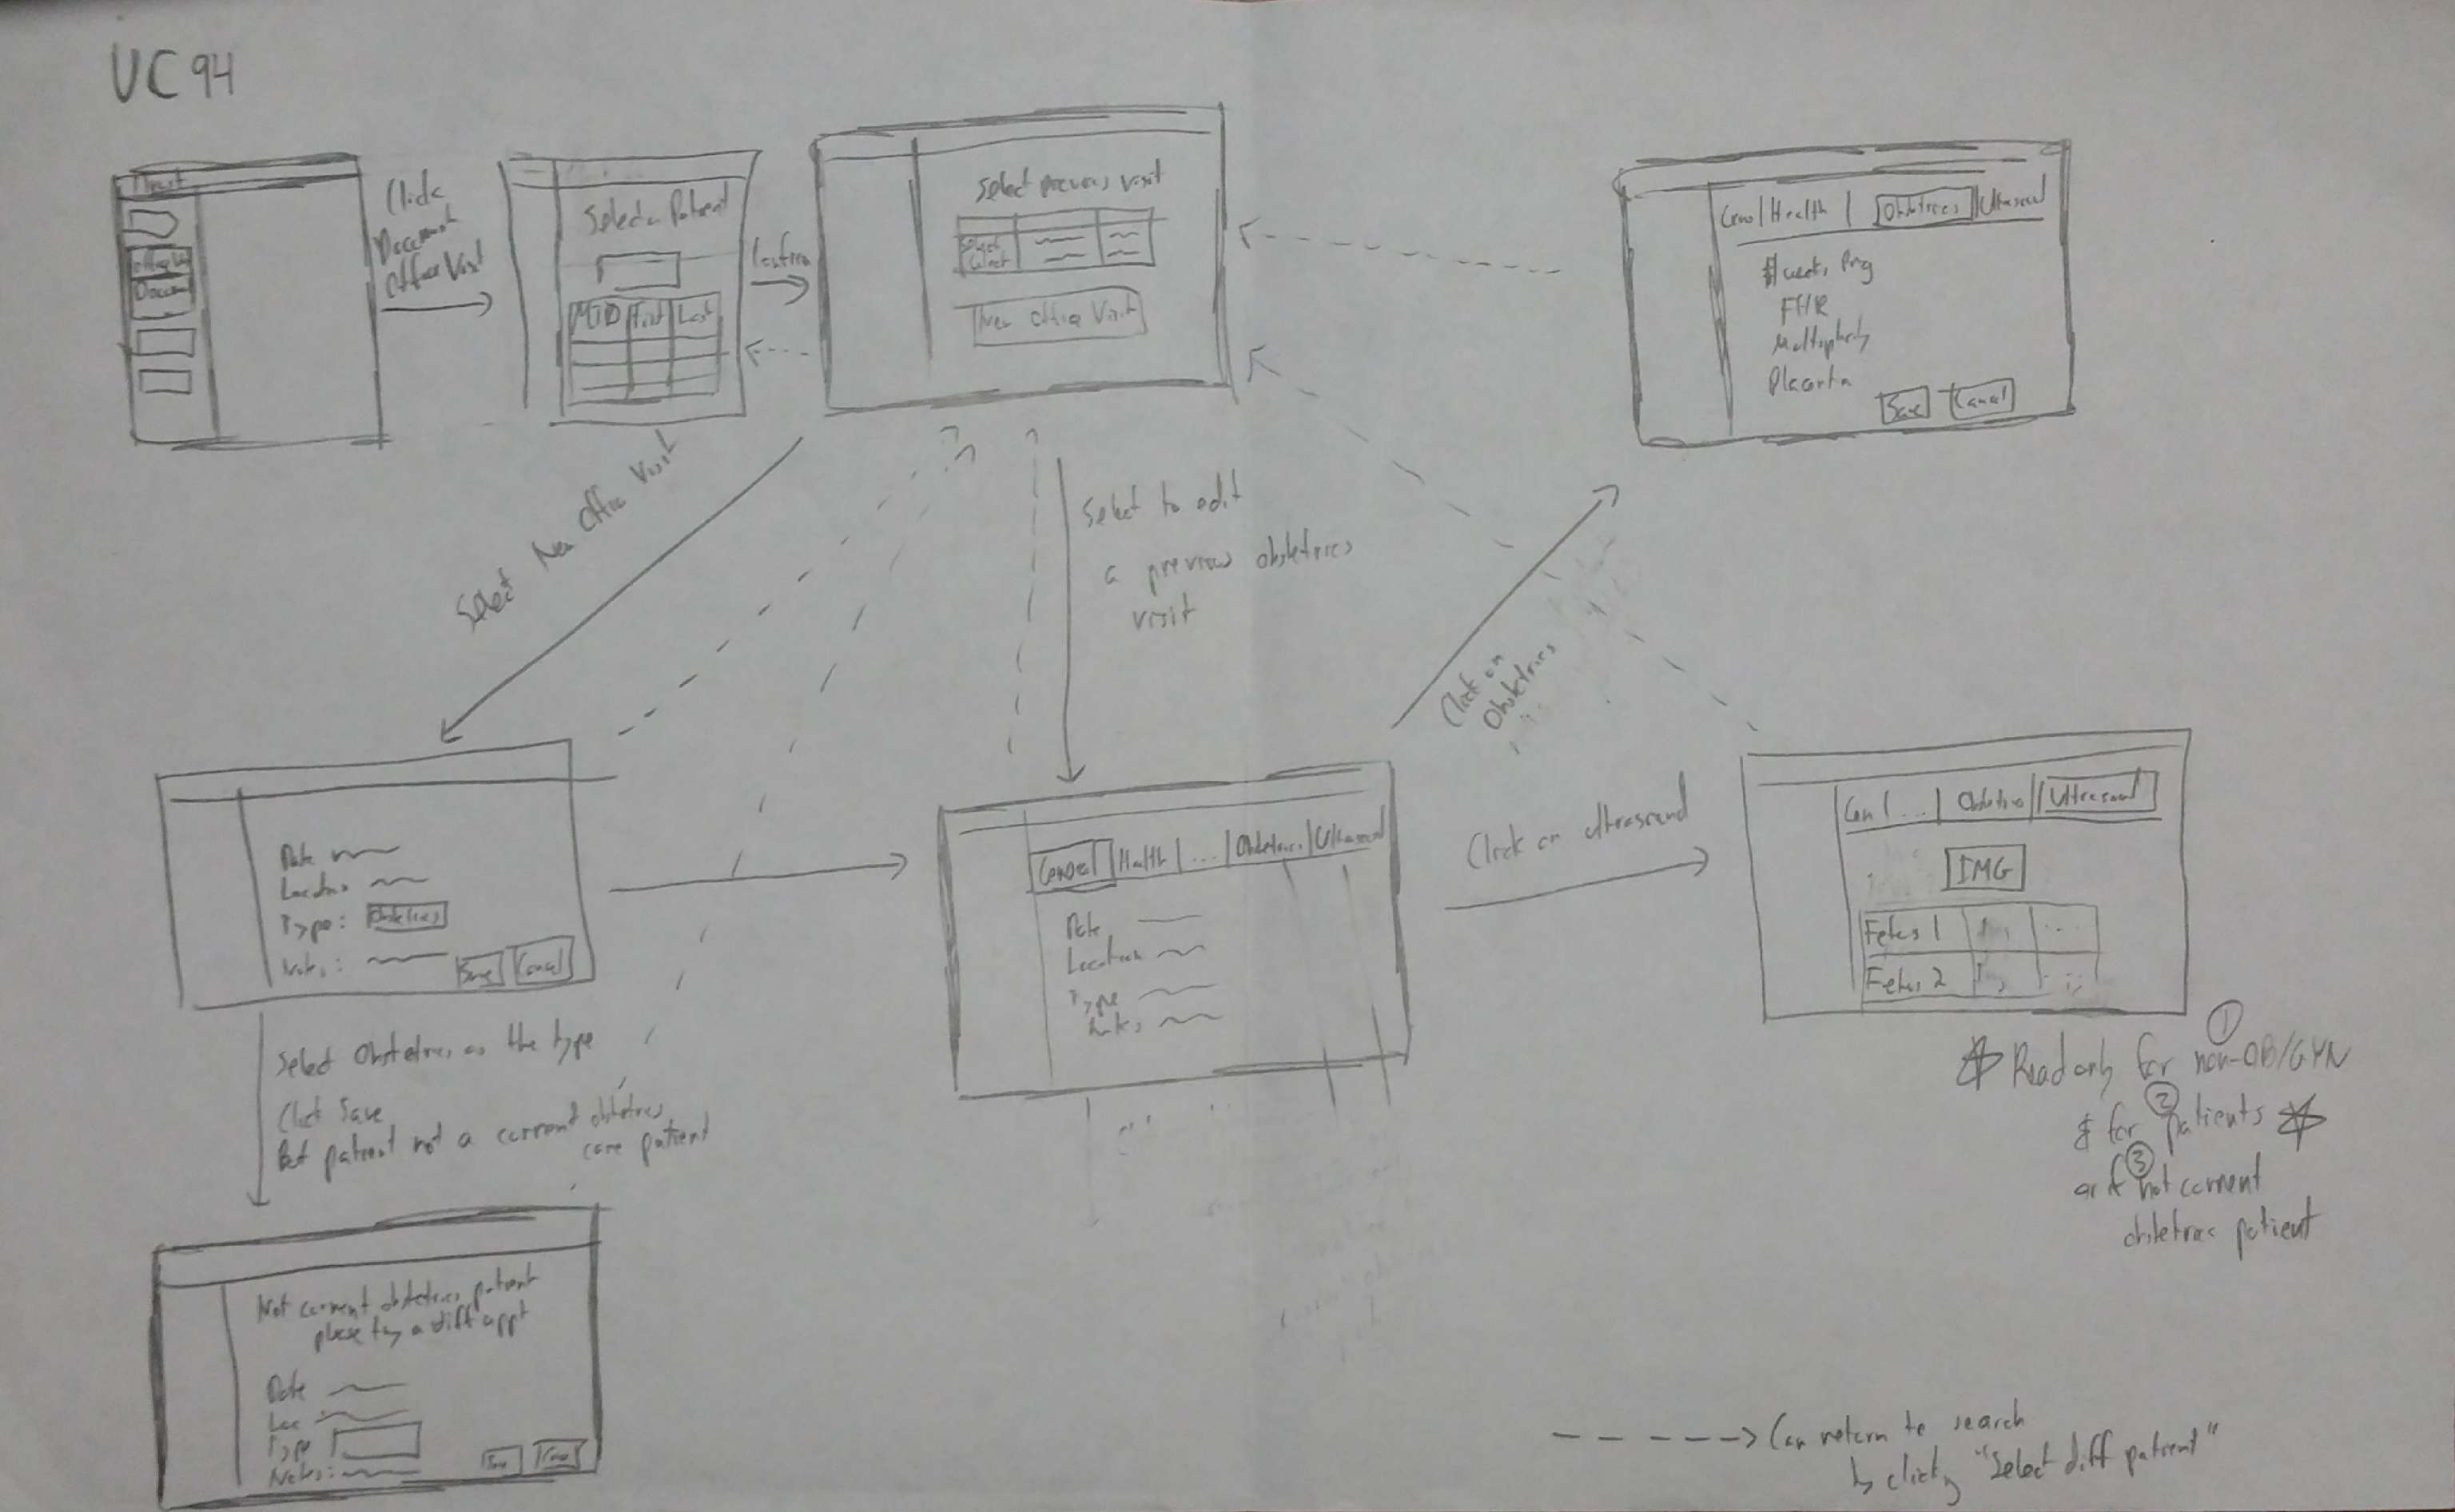 UC94
Click
Document
Office Visit
Select a Patient
MID First Last
Confirm
Select previous visit
Select
Select
New Office Visit
Gen | Health | Obstetrics | Ultrasound
# weeks Preg
FHR
Multiplicity
Placenta
Save Cancel
Select New Office Visit
Select to edit
a previous obstetrics
visit
Click on
Obstetrics
Date
Location
Type: Obstetrics
Notes:
Save Cancel
General | Health | ... | Obstetrics | Ultrasound
Date
Location
Type
Notes
Click on ultrasound
Gen | ... | Obstetrics | Ultrasound
IMG
Fetus 1
Fetus 2
Read only for ① non-OB/GYN
& for ② patients
or if ③ not current
obstetrics patient
Select Obstetrics as the type
Click Save
But patient not a current obstetrics
care patient
Not current obstetrics patient
please try a diff appt
Date
Loc
Type
Notes:
Can return to search
by clicking "Select diff patient"